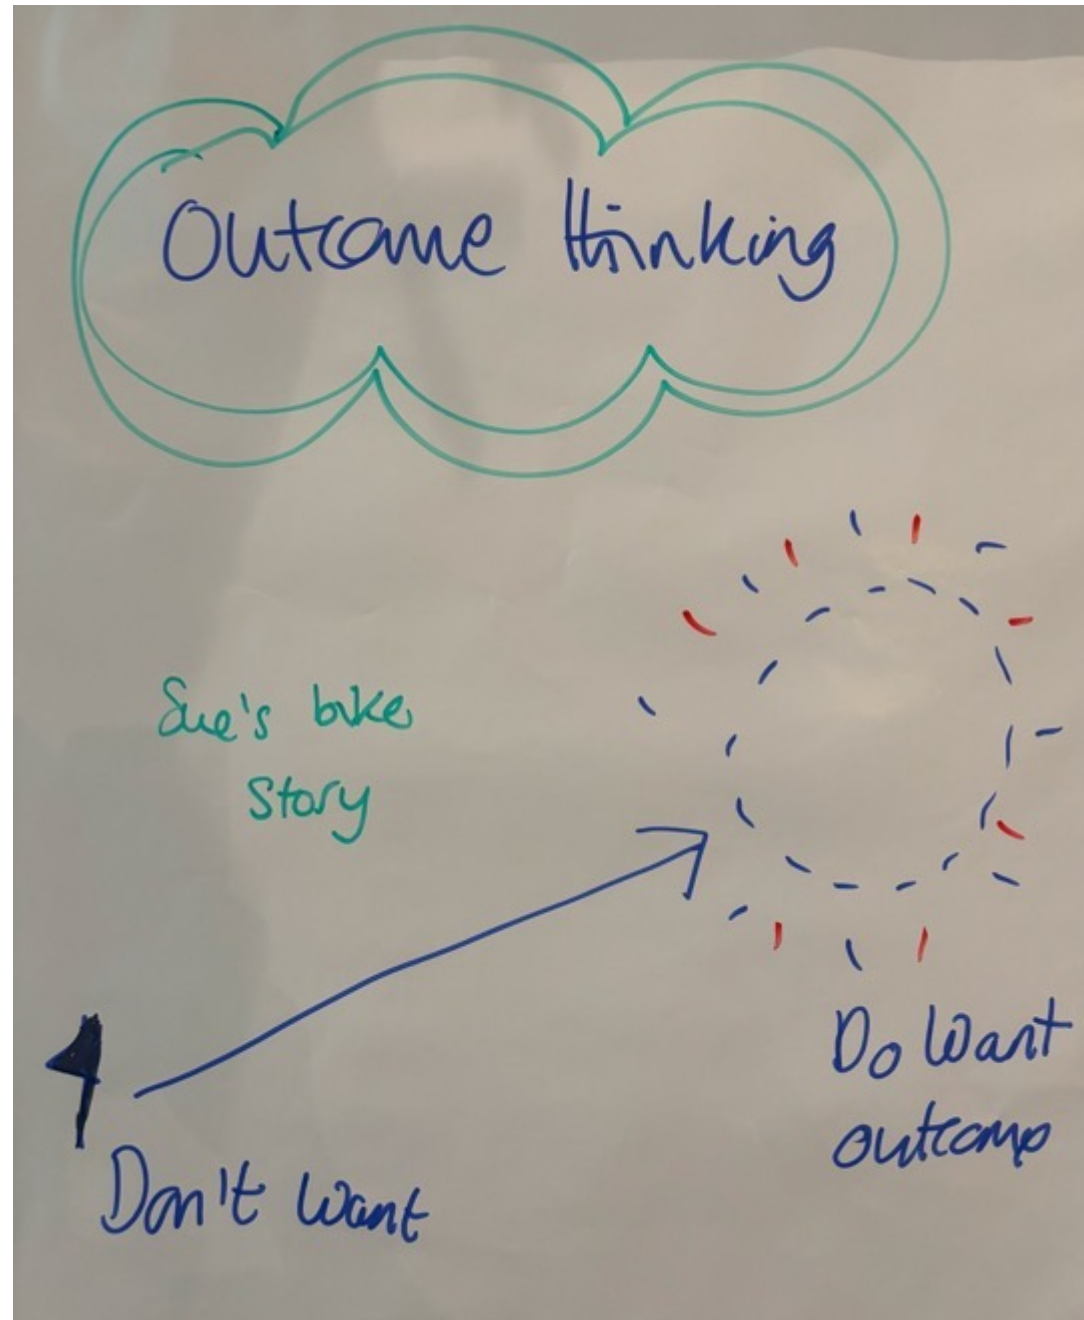 Outcome thinking
Sue's bike
Story
Do Want
outcome
Don't want